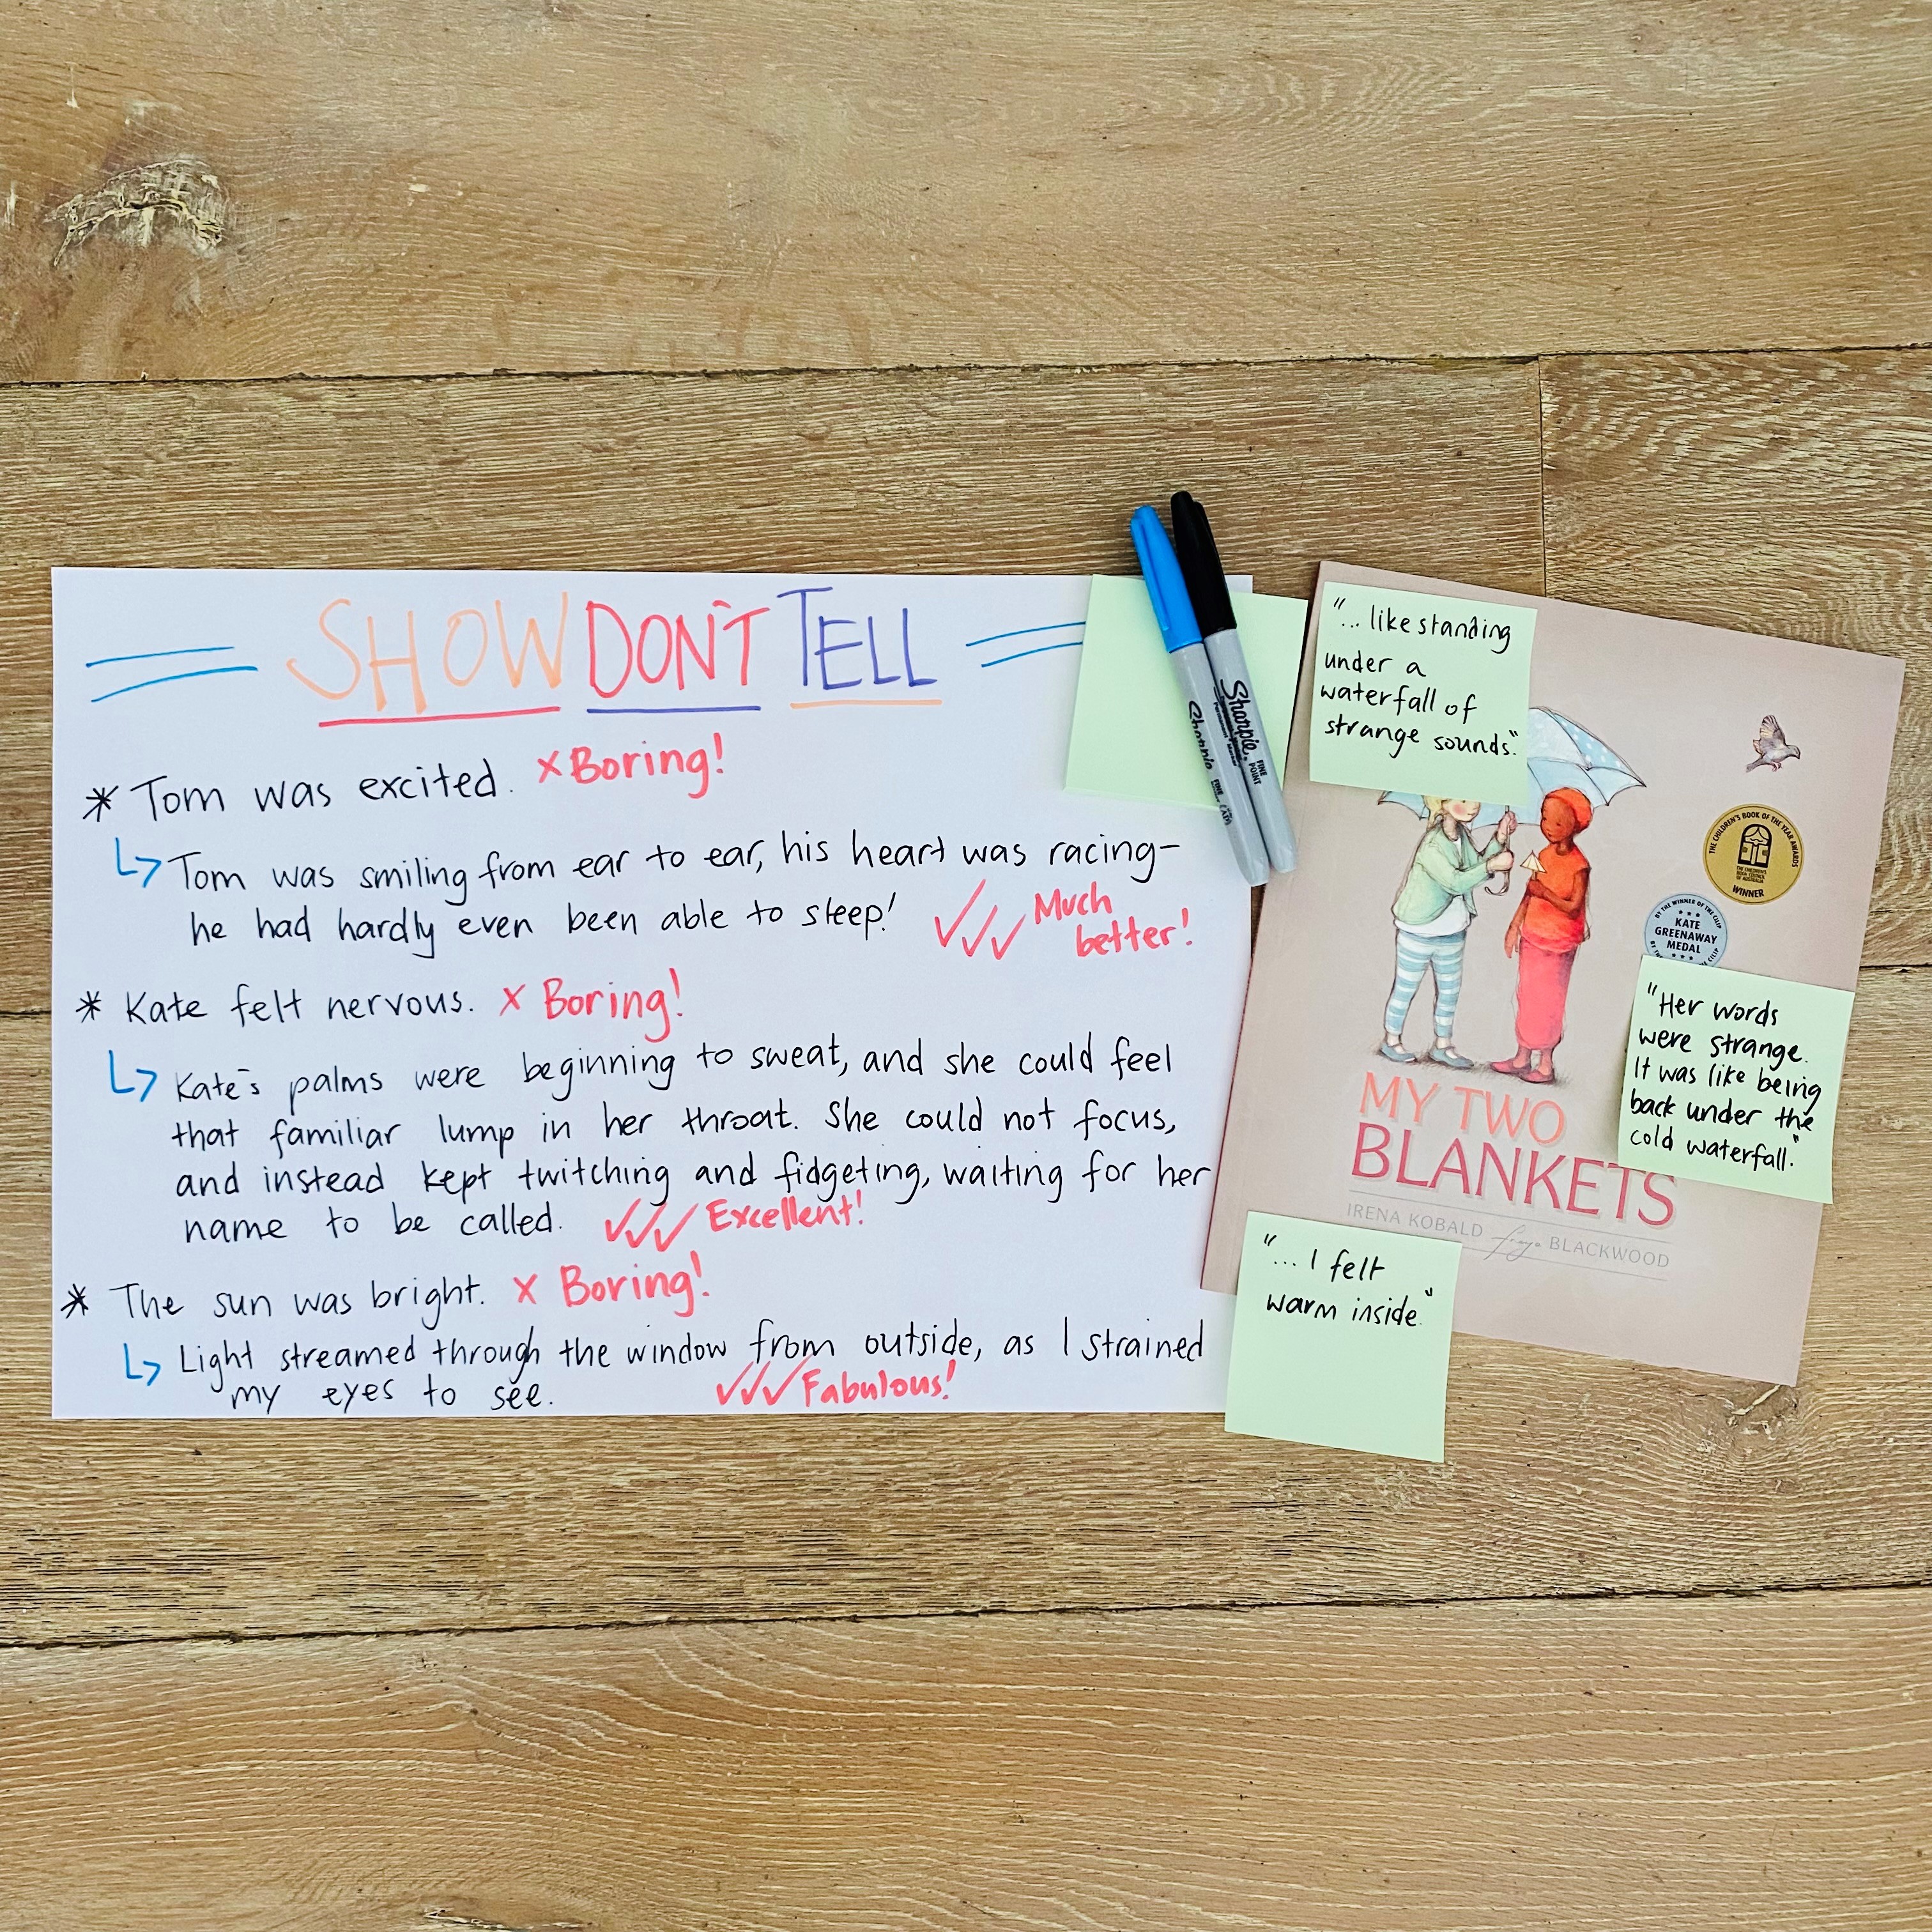 SHOW DON'T TELL
* Tom was excited. x Boring!
↳ Tom was smiling from ear to ear, his heart was racing-
he had hardly even been able to sleep! ✓✓✓ Much
better!
* Kate felt nervous. x Boring!
↳ Kate's palms were beginning to sweat, and she could feel
that familiar lump in her throat. She could not focus,
and instead kept twitching and fidgeting, waiting for her
name to be called. ✓✓✓ Excellent!
* The sun was bright. x Boring!
↳ Light streamed through the window from outside, as I strained
my eyes to see. ✓✓✓ Fabulous!
Sharpie
FINE
Sharpie.
FINE
POINT
"... like standing
under a
waterfall of
strange sounds."
THE CHILDREN'S BOOK OF THE YEAR AWARDS
WINNER
BY THE WINNER OF THE CILIP
KATE
GREENAWAY
MEDAL
"Her words
were strange.
It was like being
back under the
cold waterfall."
MY TWO
BLANKETS
IRENA KOBALD freya BLACKWOOD
"... I felt
warm inside."